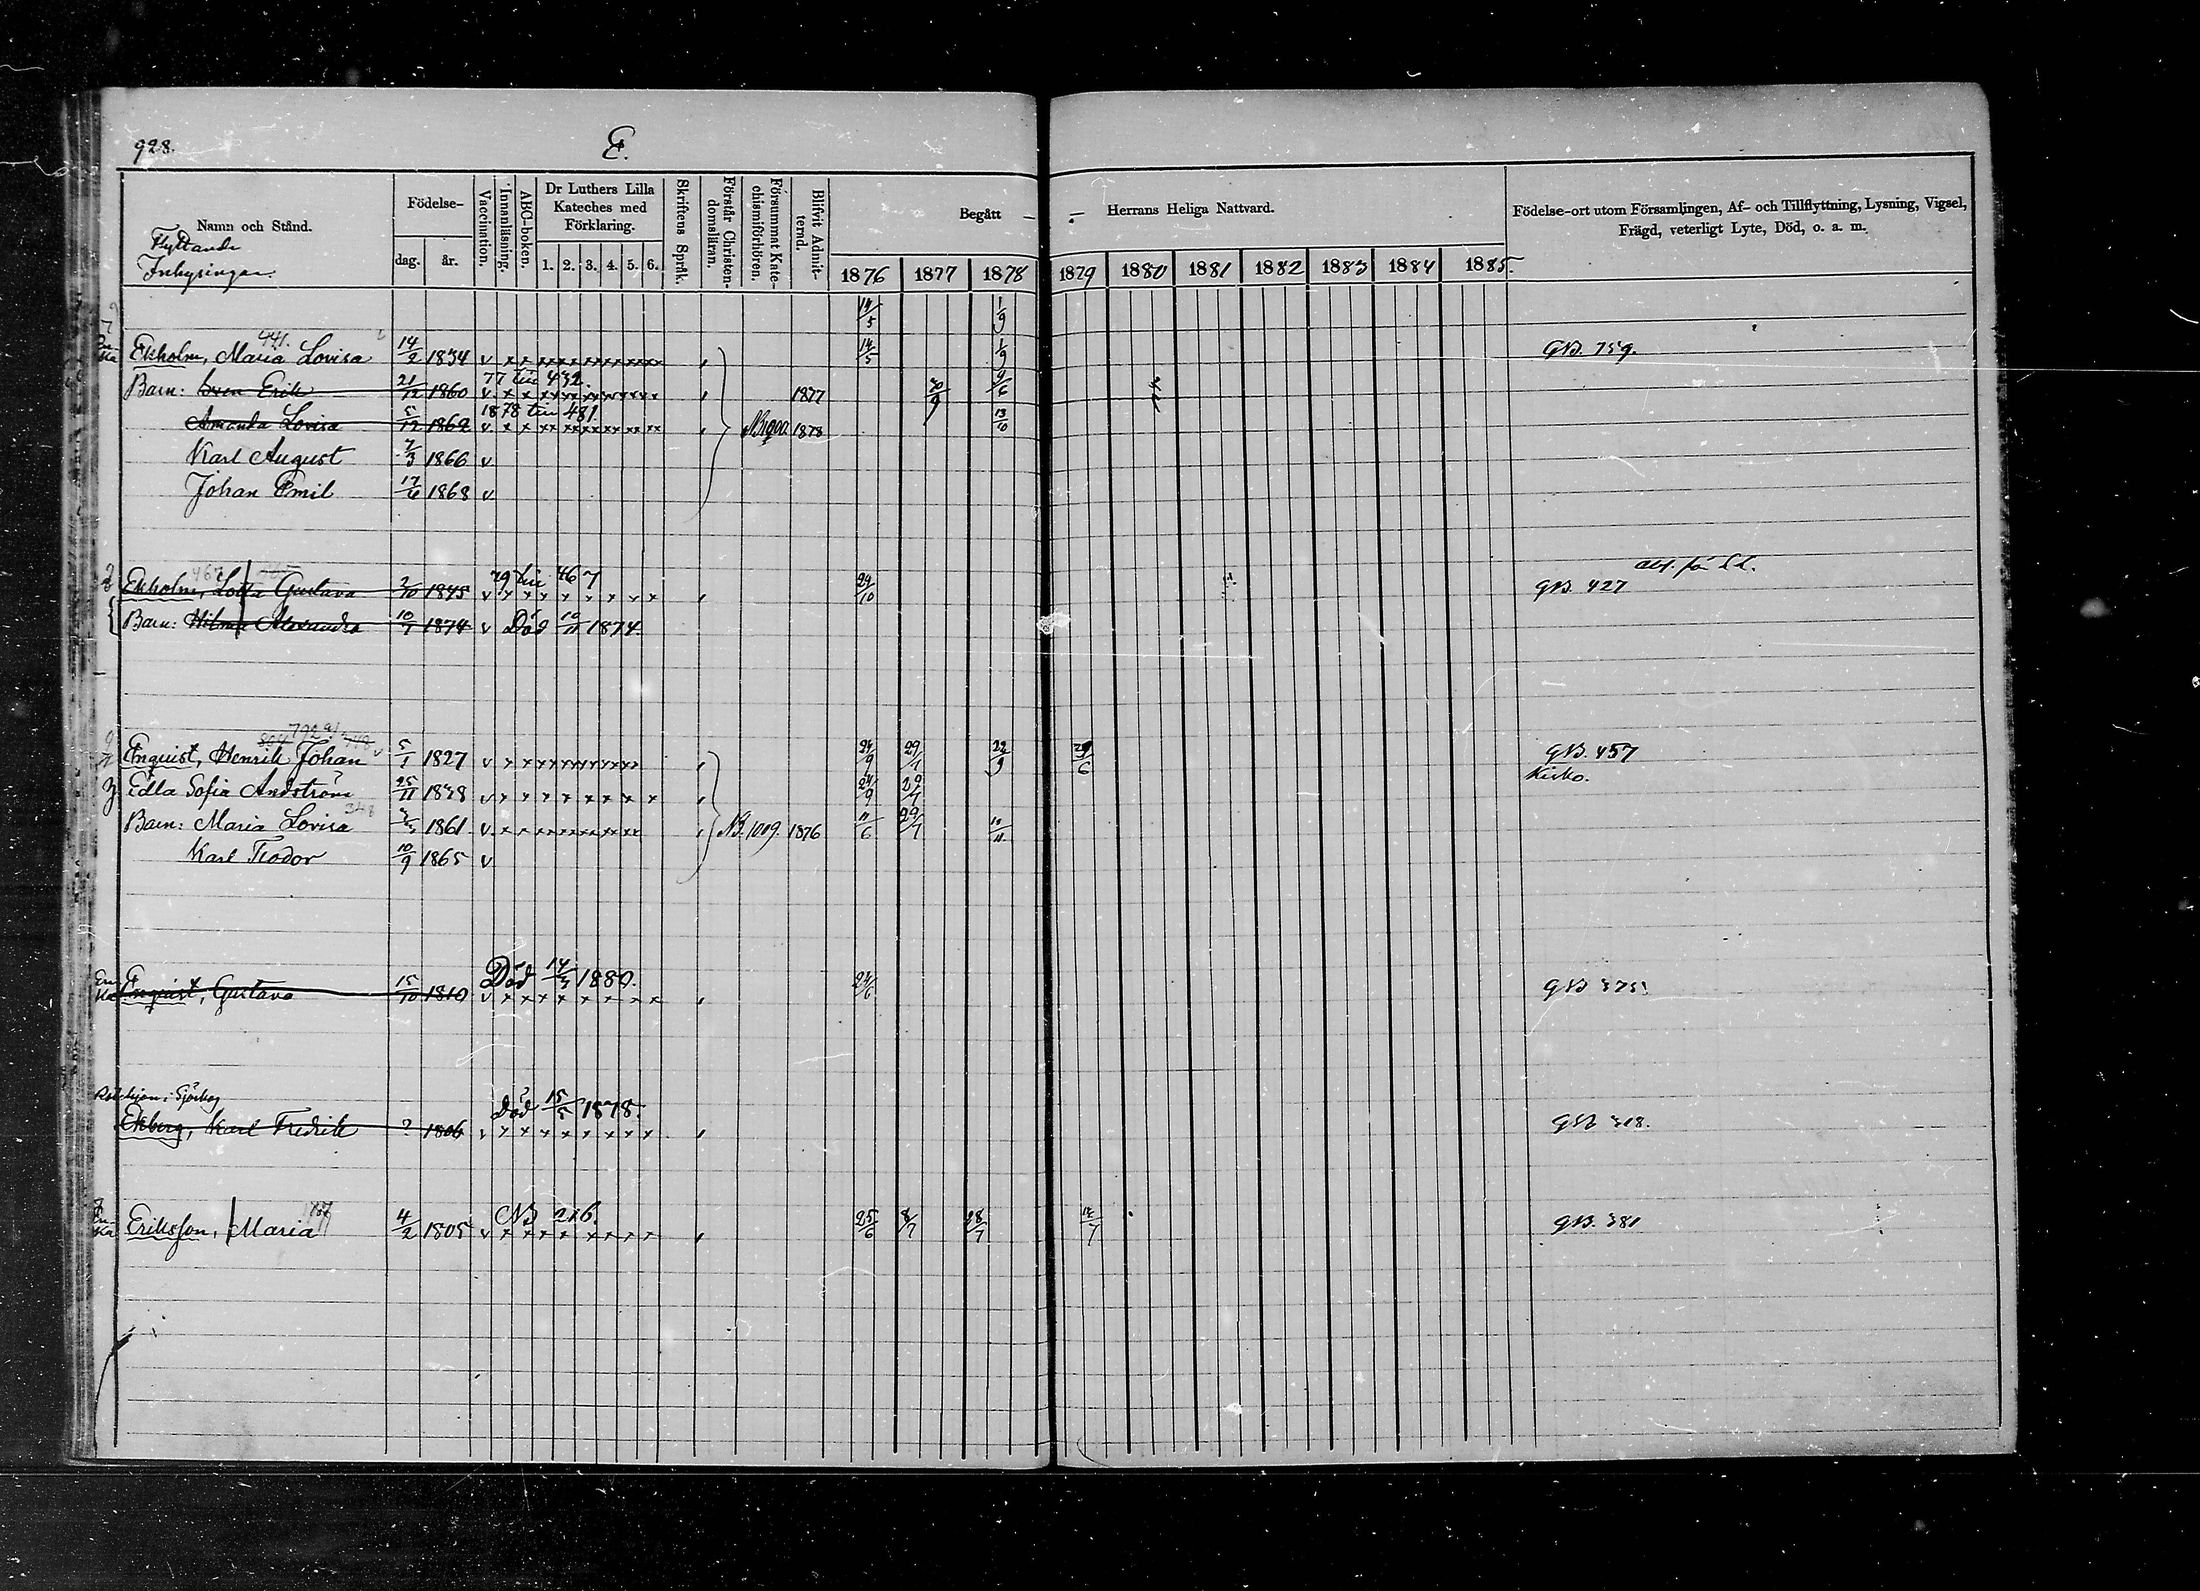 928.
E.
Namn och Stånd.
Flyttande
Inhysingar.
Födelse-
dag. år.
Vaccination.
Innanläsning.
ABC-boken.
Dr Luthers Lilla
Kateches med
Förklaring.
1. 2. 3. 4. 5. 6.
Skriftens Språk.
Förstår Christen-
domsläran.
Försummat Kate-
chismiförhören.
Blifvit Admit-
ternd.
Begått — — Herrans Heliga Nattvard.
1876 1877 1878 1879 1880 1881 1882 1883 1884 1885.
Födelse-ort utom Församlingen, Af- och Tillflyttning, Lysning, Vigsel,
Frägd, veterligt Lyte, Död, o. a. m.
14/5 1/9
441.
Ekholm, Maria Lovisa 14/2 1834 v x x x x x x x x 14/5 1/9 GB. 759.
77 till 432.
Barn: Sven Erik 21/12 1860 v x x x x x x x x 1877 30/9 9/6
1878 till 481.
Amanda Lovisa 5/12 1862 v x x x x x x x x 1878 13/10
Karl August 7/3 1866 v
Johan Emil 17/6 1868 v
467 79 till 467
Ekholm, Lotta Gustava 2/10 1845 v x x x x x x x x 29/10 GB. 427
Barn: Hilma Alexandra 10/7 1874 v Död 10/11 1874.
792
Enquist, Henrik Johan 5/1 1827 v x x x x x x x x 24/9 29/7 22/9 29/6 GB. 457
Kisko.
Edla Sofia Andström 25/11 1838 v x x x x x x x x 24/9 29/7
348
Barn: Maria Lovisa 1861 v x x x x x x x x NB. 1009. 1876 11/6 29/7 10/11
Karl Teodor 10/9 1865 v
Död 14/3 1880.
Enquist, Gustava 15/10 1810 v x x x x x x x x 24/6 GB 375.
Död 15/5 1878.
Ekberg, Karl Fredrik ? 1806 v x x x x x x x x GB 318.
NB 216.
Eriksson, Maria 4/2 1805 v x x x x x x x x 25/6 8/7 28/7 GB. 381